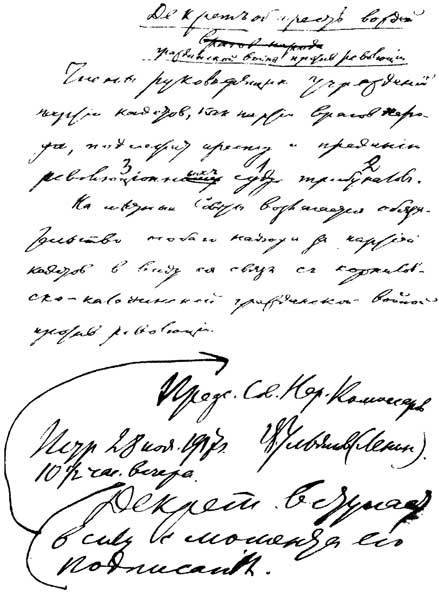 Декрет об аресте вождей
врагов народа
гражданской войны против революции
Члены руководящих учреждений
партии кадетов, как партии врагов наро-
да, подлежат аресту и преданию
3 1 2
революционных суду трибуналов.
На местные Советы возлагается обяза-
тельство особого надзора за партией
кадетов в виду ея связи с корнилов-
ско-калединской гражданской войной
против революции.
Предс. Св. Нар. Комиссаров
Петр 28 ноя. 1917 г. В. Ульянов (Ленин).
10 1/2 час. вечера.
Декрет вступает
в силу с момента его
подписания.